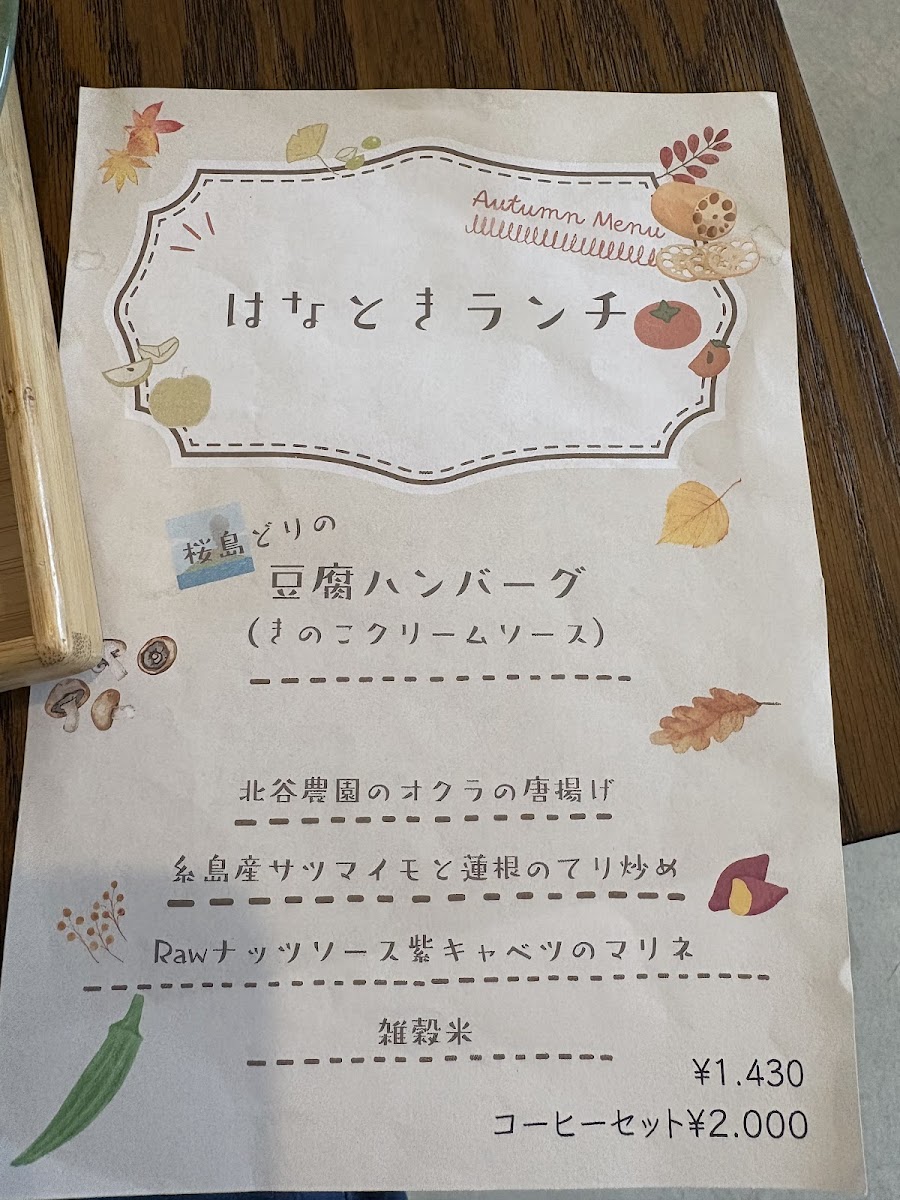 Autumn Menu
はなときランチ
桜島どりの
豆腐ハンバーグ
(きのこクリームソース)
北谷農園のオクラの唐揚げ
糸島産サツマイモと蓮根のてり炒め
Rawナッツソース紫キャベツのマリネ
雑穀米
¥1.430
コーヒーセット¥2.000